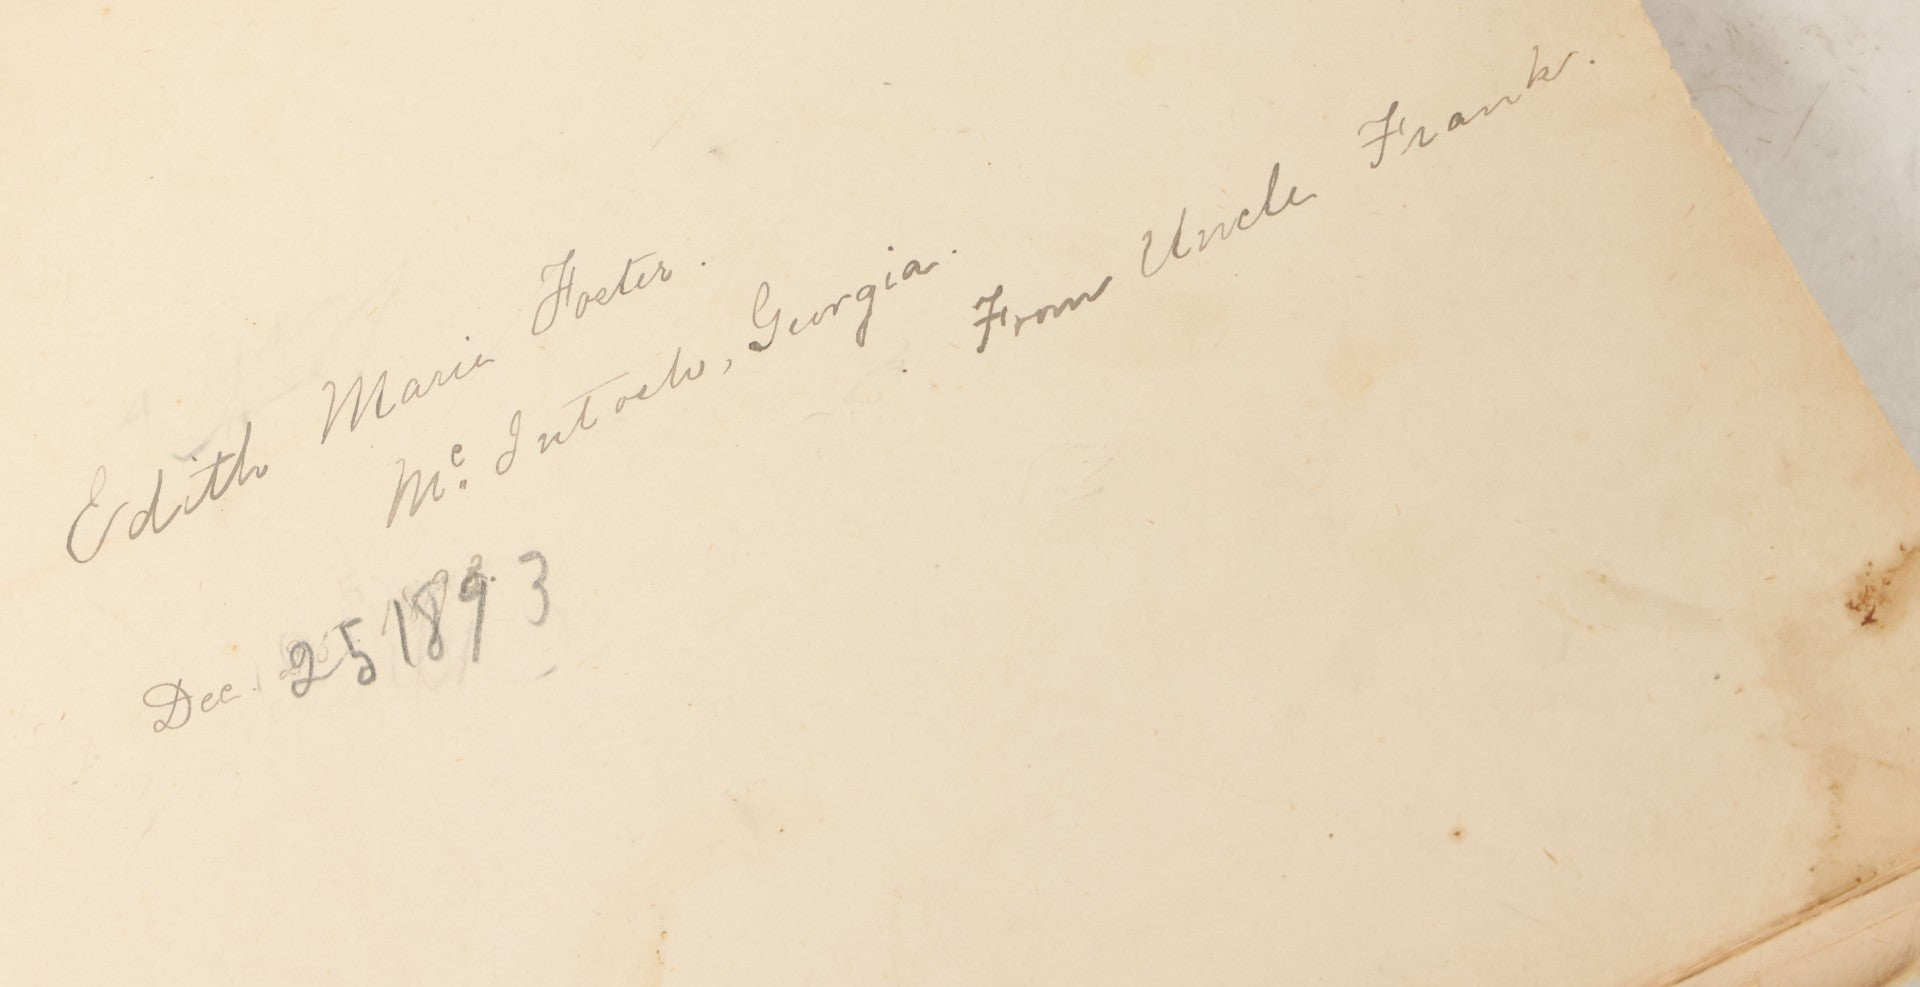 Edith Maria Foster.
Mc. Intosh, Georgia.
From Uncle Frank.
Dec. 25 1893